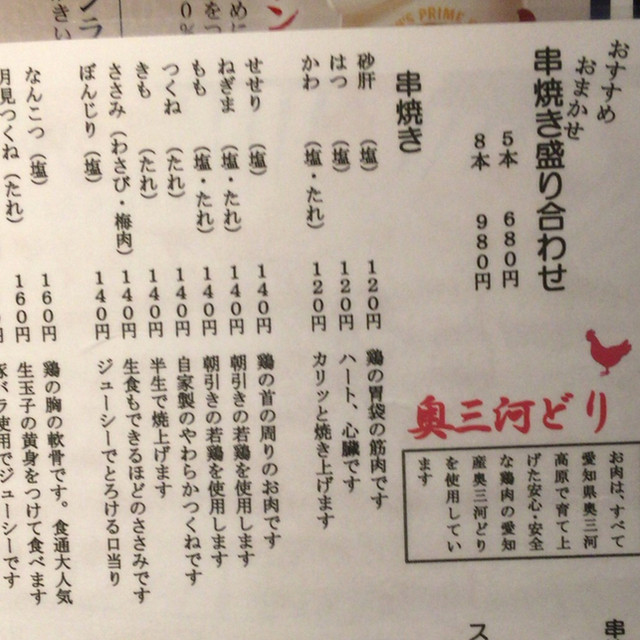 おすすめ
おまかせ
串焼き盛り合わせ
5本 680円
8本 980円
奥三河どり
お肉は、すべて
愛知県奥三河
高原で育て上
げた安心・安全
な鶏肉の愛知
産奥三河どり
を使用してい
ます
串焼き
砂肝 (塩) 120円 鶏の胃袋の筋肉です
はつ (塩) 120円 ハート、心臓です
かわ (塩・たれ) 120円 カリッと焼き上げます
せせり (塩) 140円 鶏の首の周りのお肉です
ねぎま (塩・たれ) 140円 朝引きの若鶏を使用します
もも (塩・たれ) 140円 朝引きの若鶏を使用します
つくね (たれ) 140円 自家製のやわらかつくねです
きも (たれ) 140円 半生で焼上げます
ささみ (わさび・梅肉) 140円 生食もできるほどのささみです
ぼんじり (塩) 140円 ジューシーでとろける口当り
なんこつ (塩) 160円 鶏の胸の軟骨です。食通大人気
月見つくね (たれ) 160円 生玉子の黄身をつけて食べます
バラ使用でジューシーです
串
ス
'S PRIME